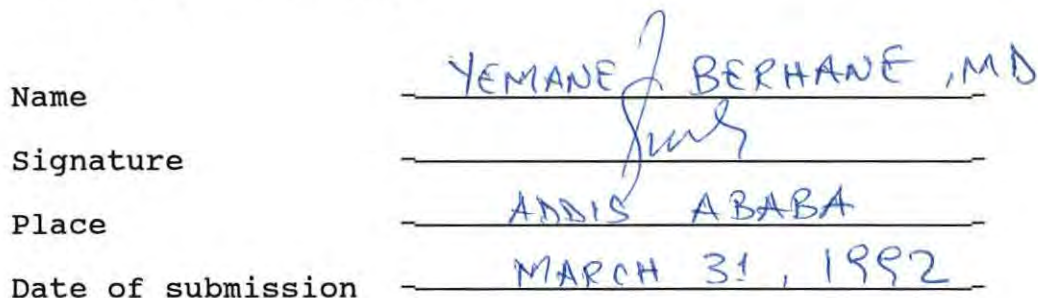 Name YEMANE BERHANE, MD
Signature
Place ADDIS ABABA
Date of submission MARCH 31, 1992